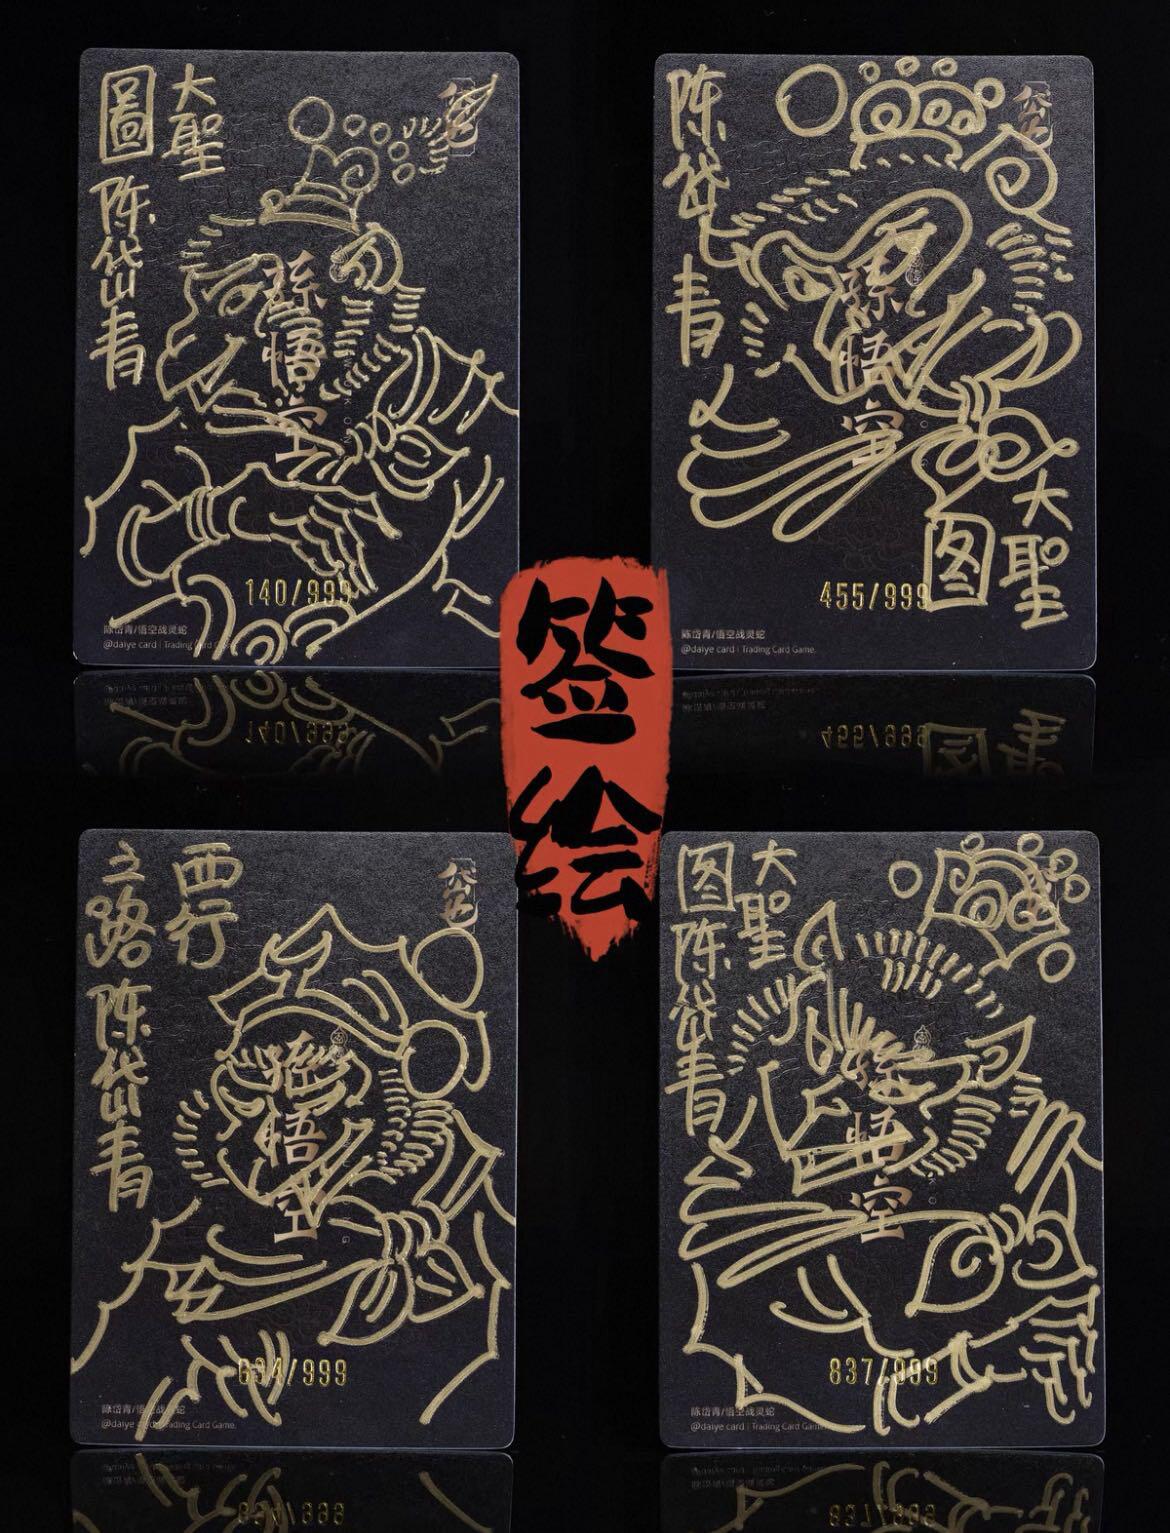 大聖
圖
陈岱青
孫悟空
140/999
陈岱青/悟空战灵蛇
@daiye card | Trading Card Game.
陈岱青
孫悟空
大聖
图
455/999
陈岱青/悟空战灵蛇
@daiye card | Trading Card Game.
签绘
西行
之路
陈岱青
孫悟空
634/999
陈岱青/悟空战灵蛇
@daiye card | Trading Card Game.
大聖
图
陈岱青
孫悟空
837/999
陈岱青/悟空战灵蛇
@daiye card | Trading Card Game.